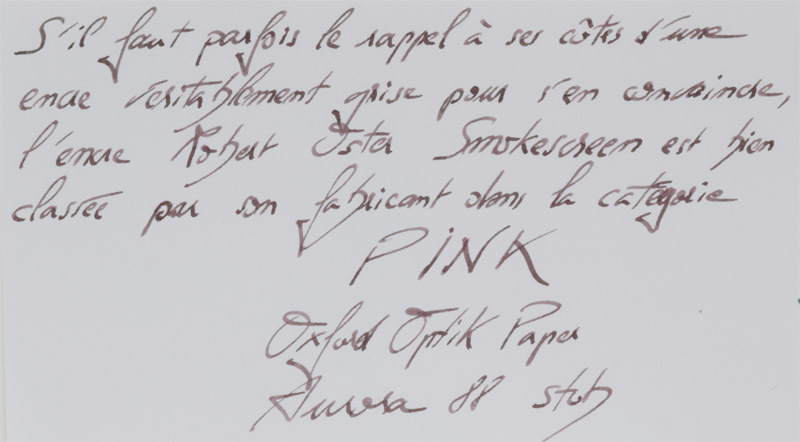 S'il faut parfois le rappel à ses côtés d'une
encre véritablement grise pour s'en convaincre,
l'encre Robert Oster Smokescreen est bien
classée par son fabricant dans la catégorie
PINK
Oxford Optik Paper
Aurora 88 stub